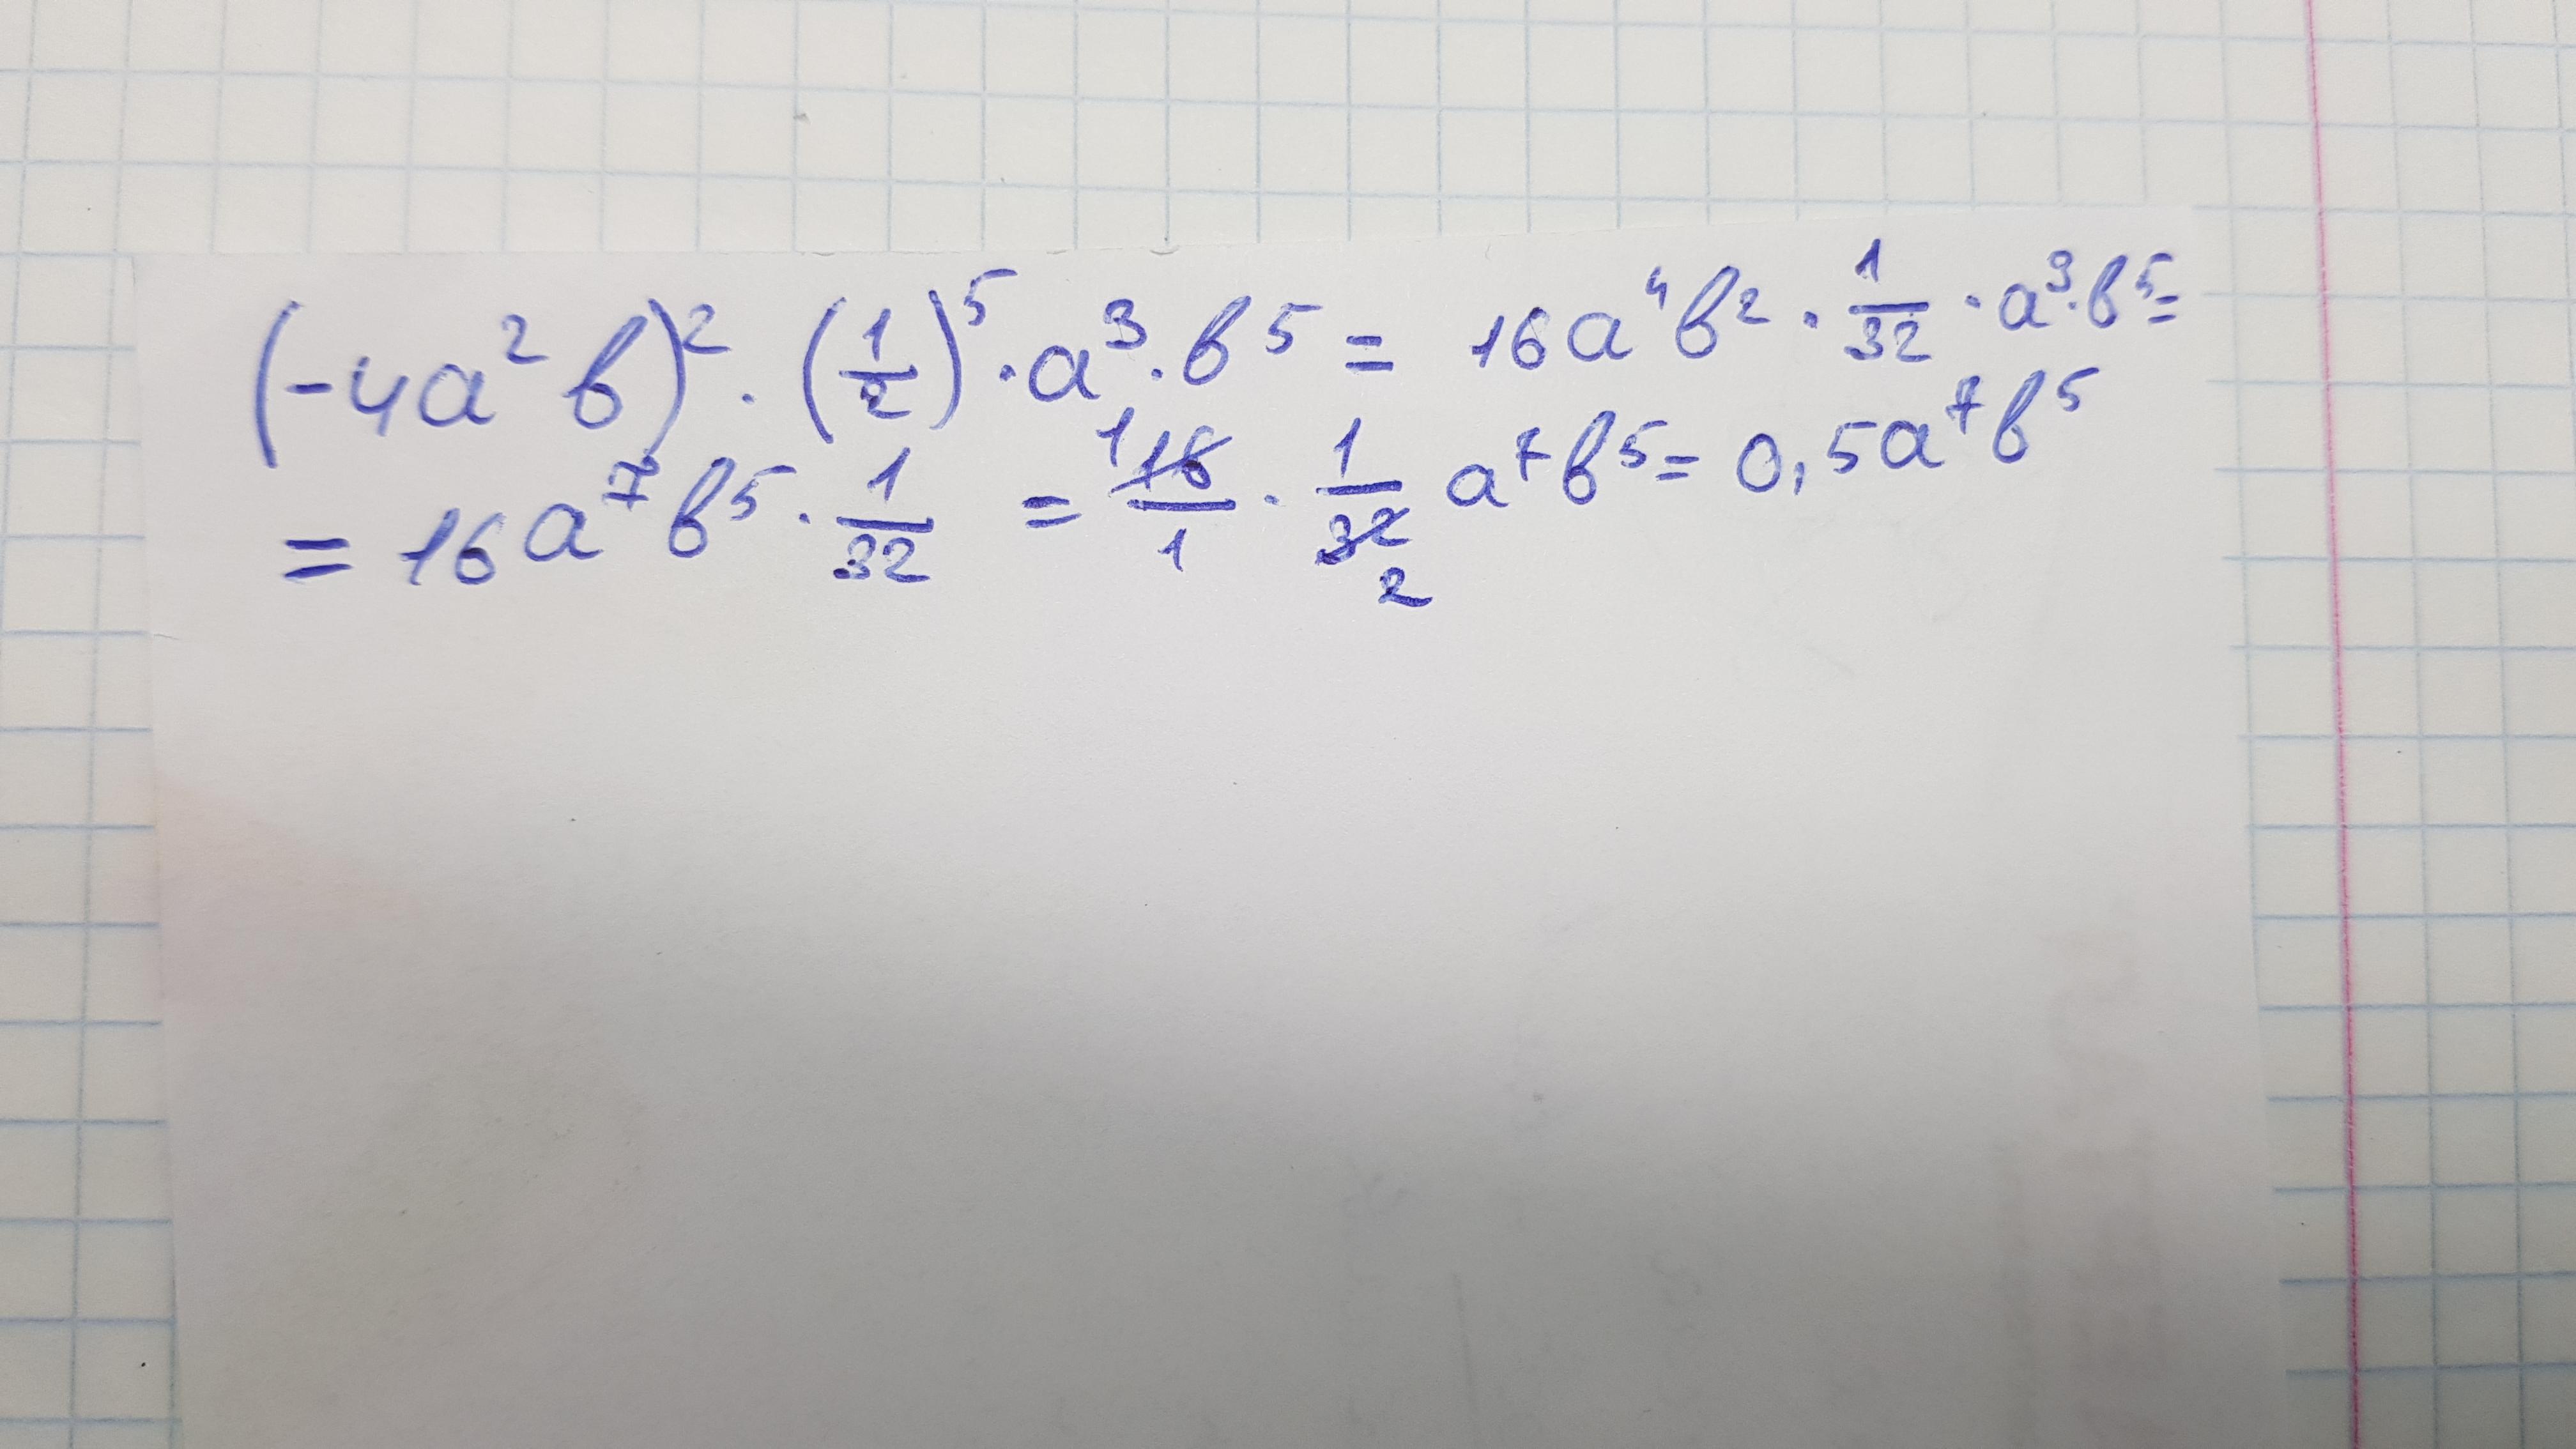 (-4a²b)² · (1/2)⁵ · a³ · b⁵ = 16a⁴b² · 1/32 · a³ · b⁵ =
= 16a⁷b⁵ · 1/32 = 1 16/1 · 1/32 2 a⁷b⁵ = 0,5a⁷b⁵